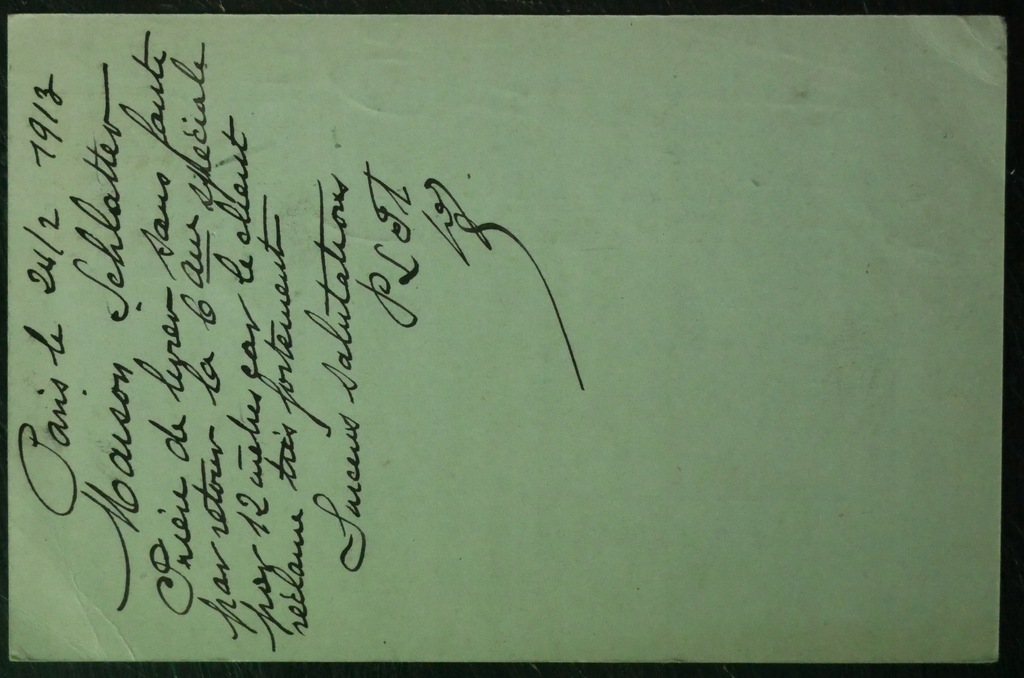 Paris le 24/2 1913
Maison Schlatter
Prière de livrer sans faute
par retour la 6 aus spéciale
par 12 mètres car le client
réclame très fortement
Sincères salutations